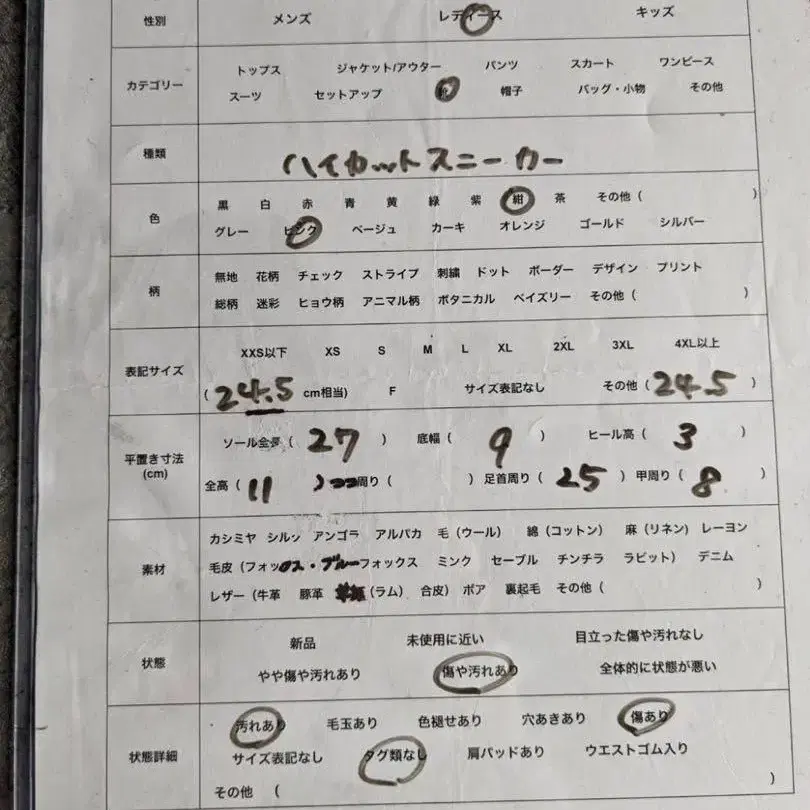 性別 メンズ レディース キッズ
カテゴリー トップス ジャケット/アウター パンツ スカート ワンピース
スーツ セットアップ 靴 帽子 バッグ・小物 その他
種類 ハイカットスニーカー
色 黒 白 赤 青 黄 緑 紫 紺 茶 その他 ( )
グレー ピンク ベージュ カーキ オレンジ ゴールド シルバー
柄 無地 花柄 チェック ストライプ 刺繍 ドット ボーダー デザイン プリント
総柄 迷彩 ヒョウ柄 アニマル柄 ボタニカル ペイズリー その他 ( )
表記サイズ XXS以下 XS S M L XL 2XL 3XL 4XL以上
( 24.5 cm相当) F サイズ表記なし その他 ( 24.5 )
平置き寸法 (cm) ソール全長 ( 27 ) 底幅 ( 9 ) ヒール高 ( 3 )
全高 ( 11 ) 周り ( ) 足首周り ( 25 ) 甲周り ( 8 )
素材 カシミヤ シルク アンゴラ アルパカ 毛 (ウール) 綿 (コットン) 麻 (リネン) レーヨン
毛皮 (フォックス・ブルーフォックス ミンク セーブル チンチラ ラビット) デニム
レザー (牛革 豚革 (ラム) 合皮) ボア 裏起毛 その他 ( )
状態 新品 未使用に近い 目立った傷や汚れなし
やや傷や汚れあり 傷や汚れあり 全体的に状態が悪い
状態詳細 汚れあり 毛玉あり 色褪せあり 穴あきあり 傷あり
サイズ表記なし タグ類なし 肩パッドあり ウエストゴム入り
その他 ( )